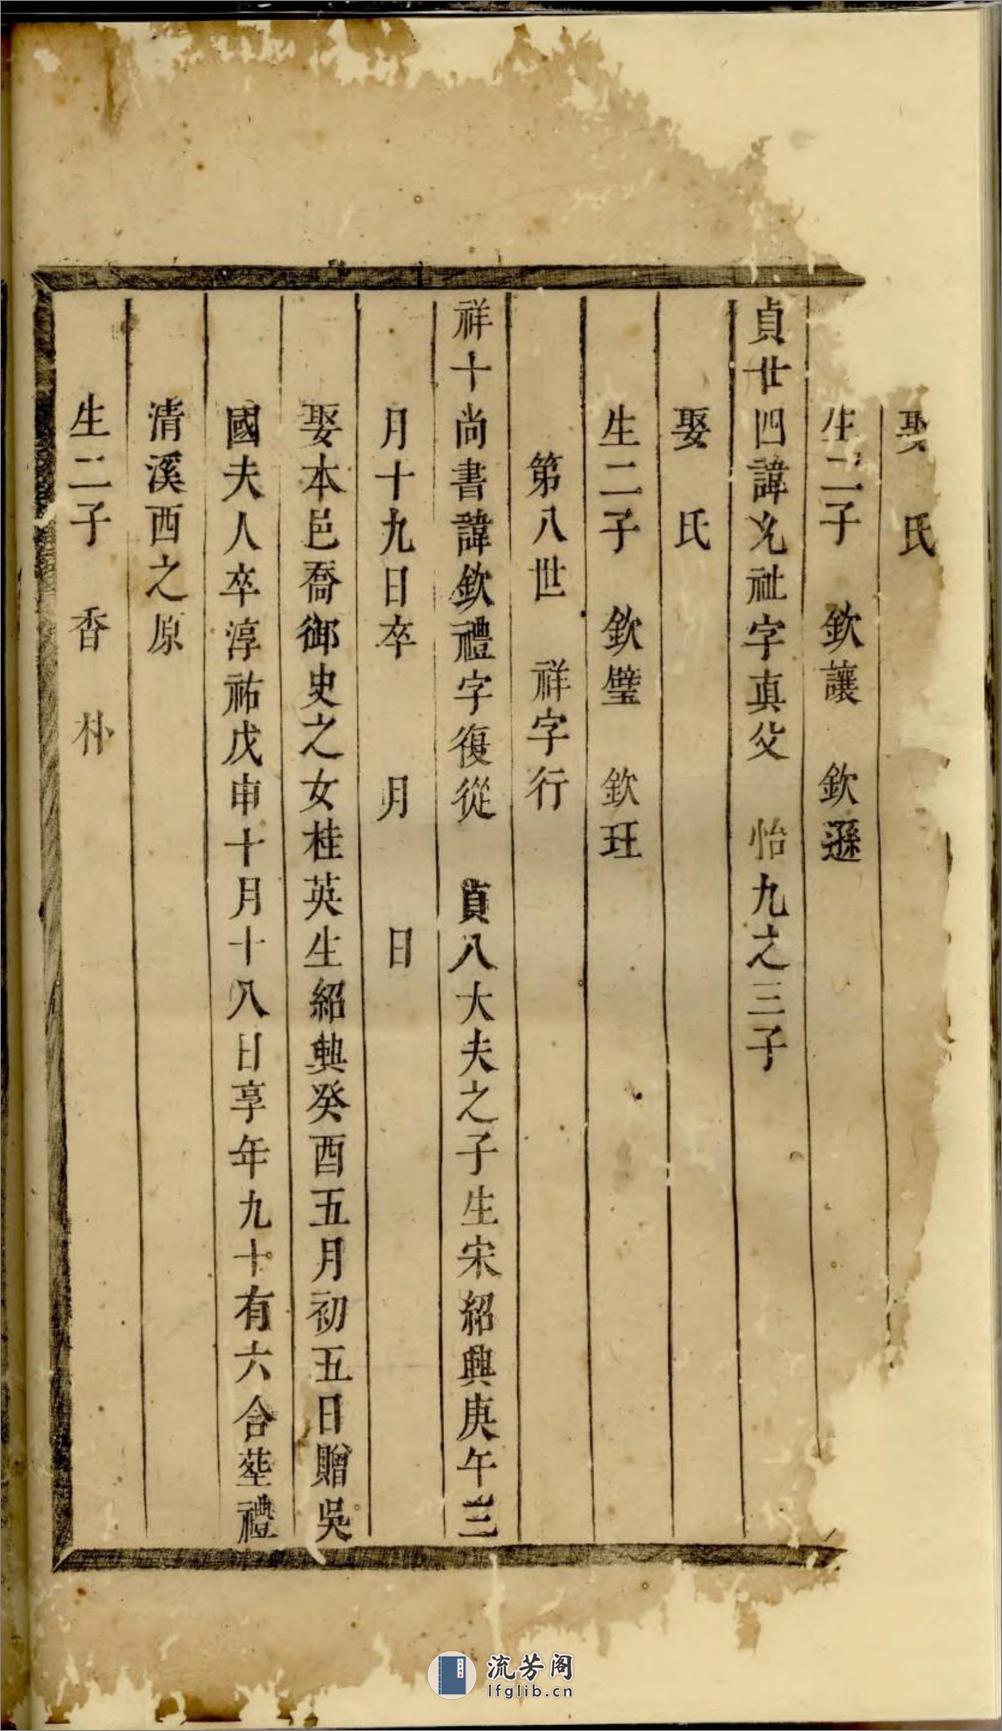 娶　氏
生二子　欽讓　欽遜
貞廿四諱允祉字真父　怡九之三子
娶　氏
生二子　欽璧　欽玨
第八世　祥字行
祥十尚書諱欽禮字復從　貞八大夫之子生宋紹興庚午三
月十九日卒　月　日
娶本邑喬御史之女桂英生紹興癸酉五月初五日贈吳
國夫人卒淳祐戊申十月十八日享年九十有六合塟禮
清溪西之原
生二子　香　朴
流芳阁
lfglib.cn